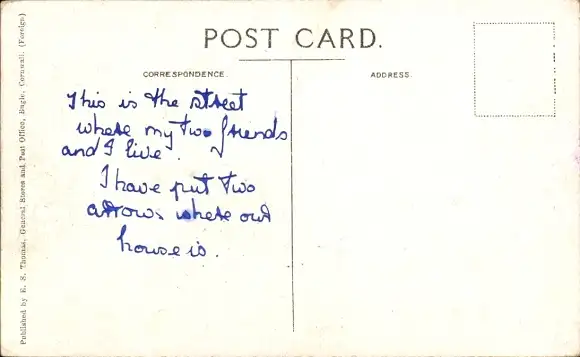 POST CARD.
CORRESPONDENCE.
ADDRESS
This is the street
where my two friends
and I live.
I have put two
arrows where our
house is.
Published by E. S. Thomas, General Stores and Post Office, Bugle, Cornwall. (Foreign)